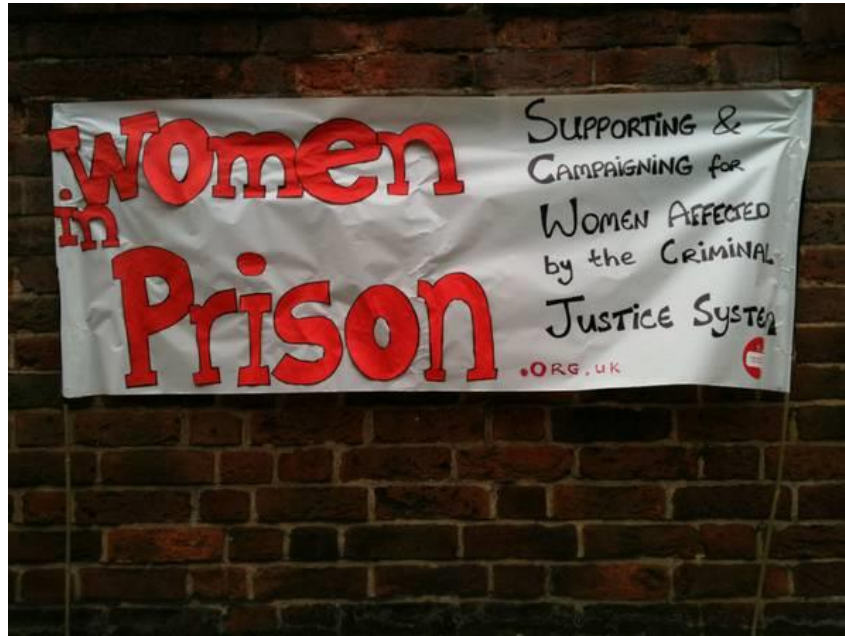 Women
in
Prison
SUPPORTING &
CAMPAiGNiNG for
WOMEN AFFECTED
by the CRiMiNAL
JUSTiCE SYSTEM
.ORG.uk